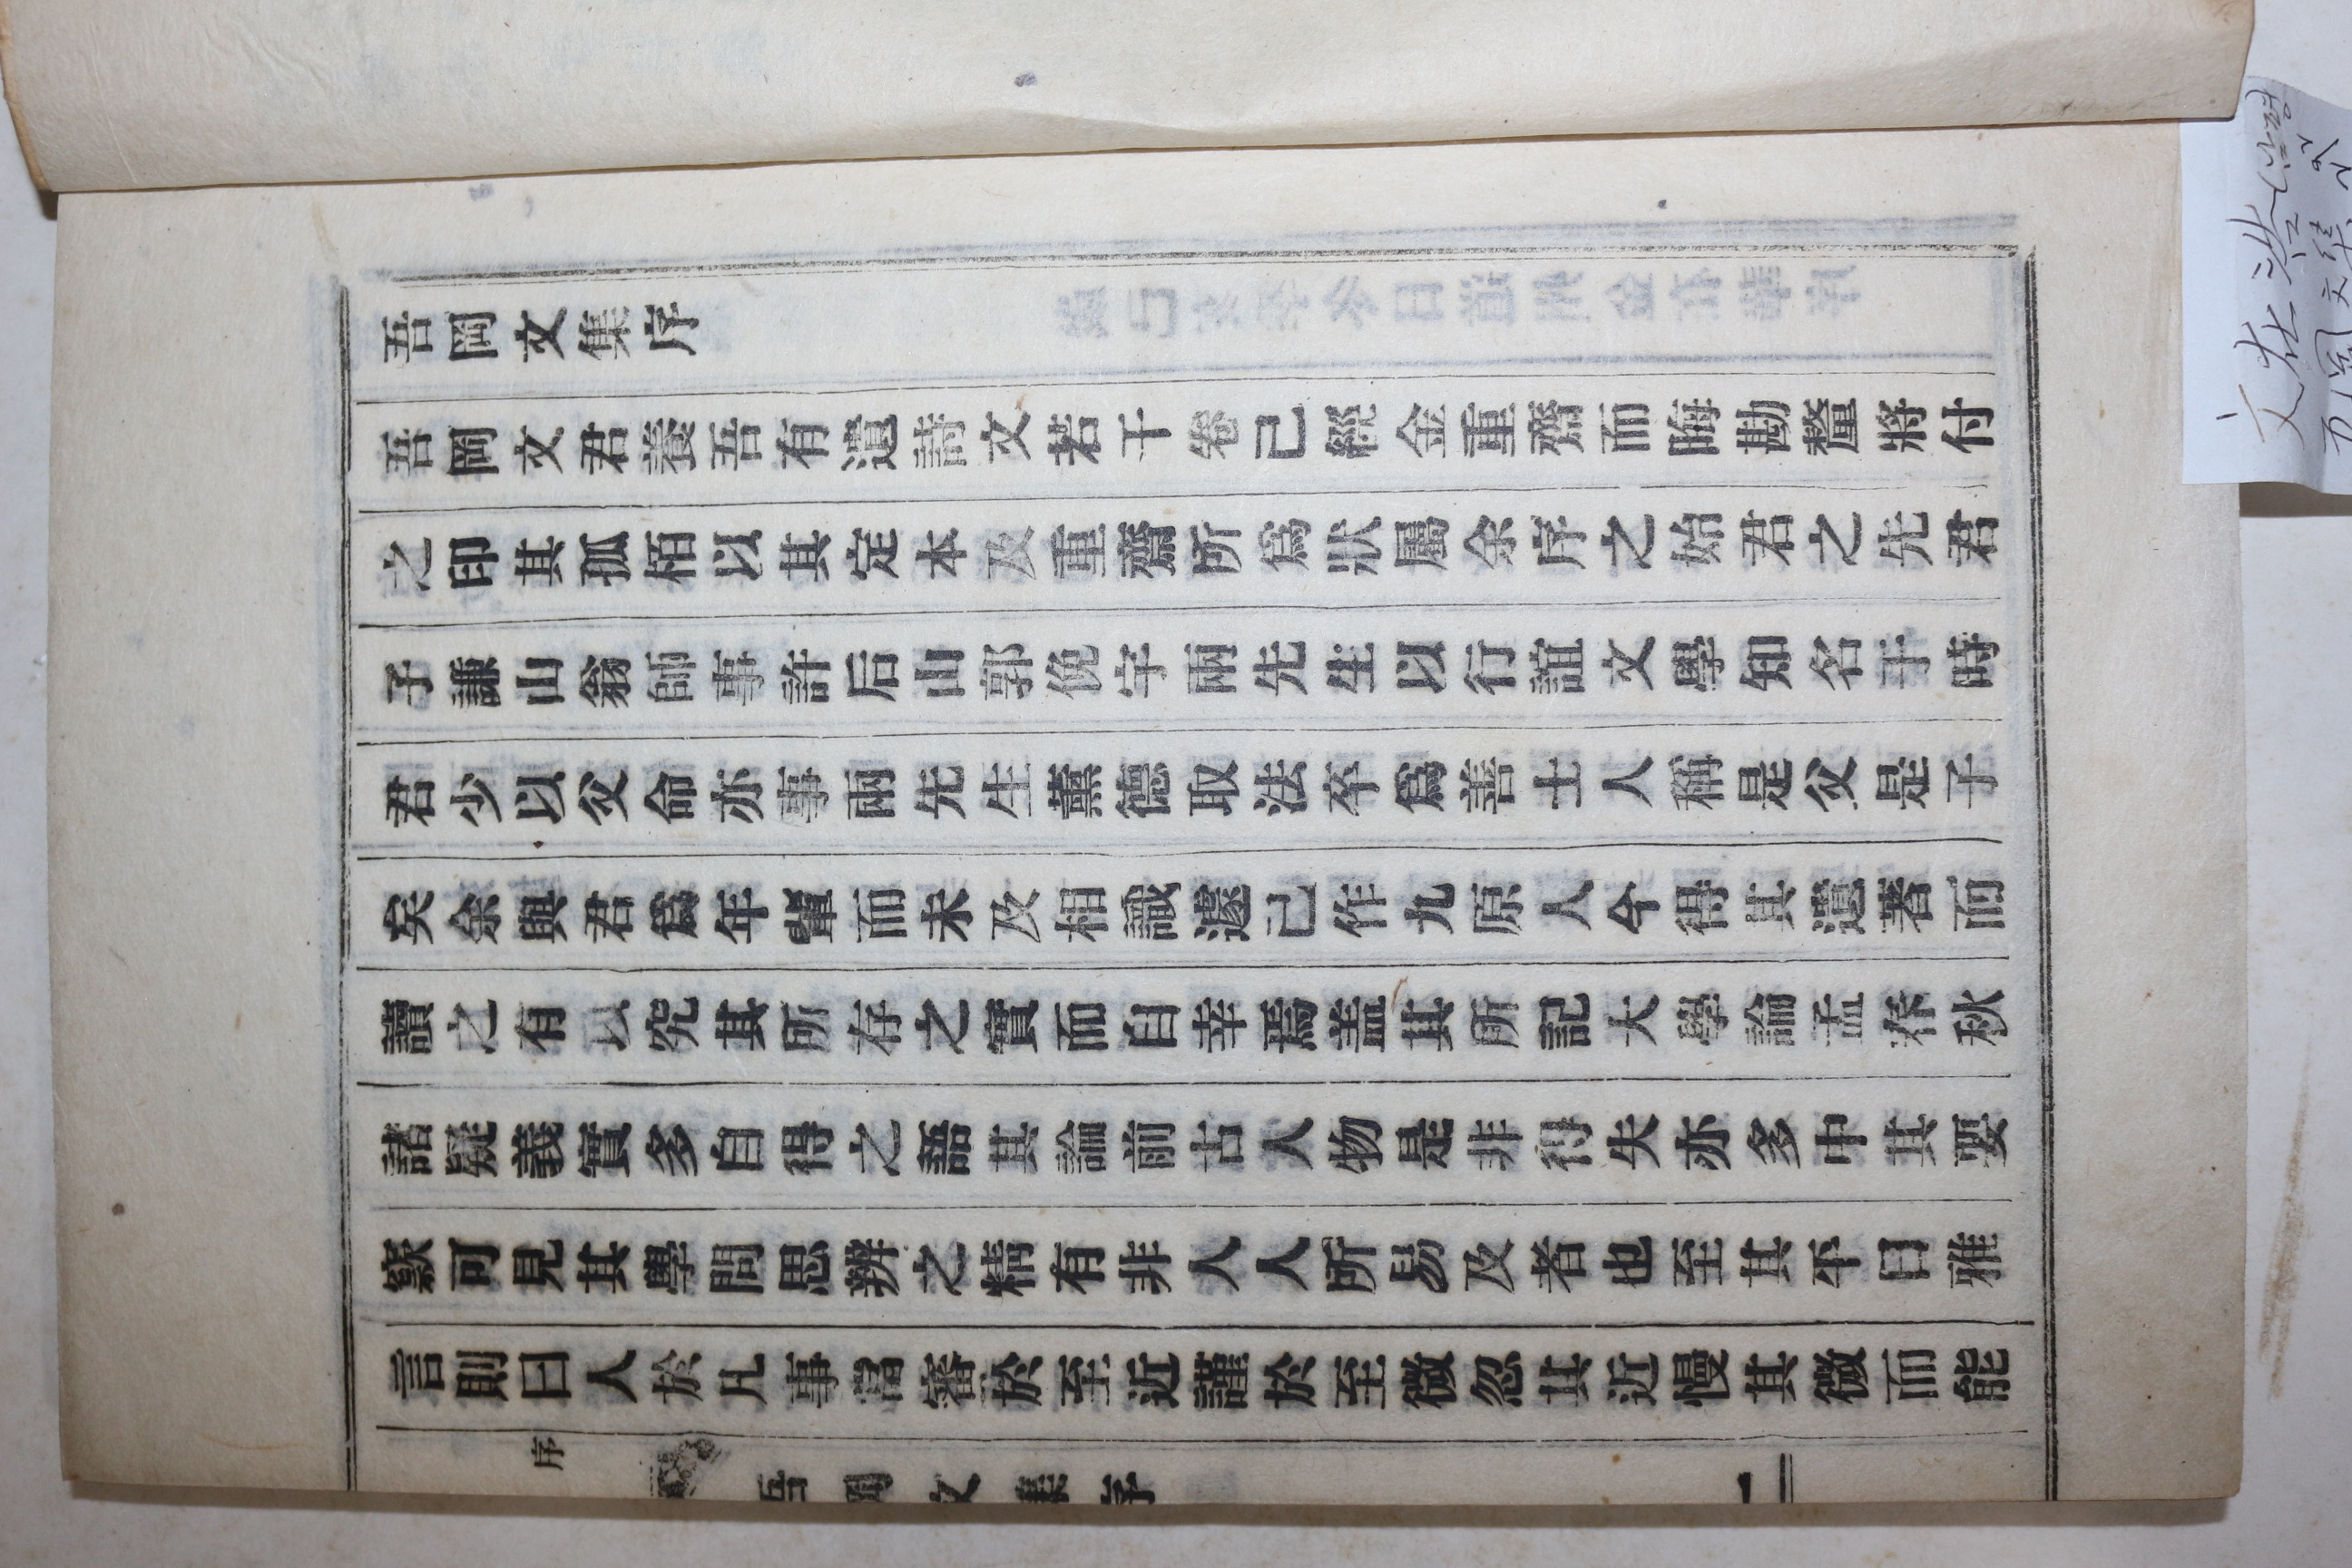 吾岡文集序
吾岡文君養吾有遺詩文若干卷已經金重齋而晦勘釐將付
之印其孤栢以其定本及重齋所爲狀屬余序之始君之先君
子謙山翁師事許后山郭俛宇兩先生以行誼文學知名于時
君少以父命亦事兩先生薰德取法卒爲善士人稱是父是子
矣余與君爲年輩而未及相識遽已作九原人今得其遺著而
讀之有以究其所存之實而自幸焉盖其所記大學論孟春秋
諸疑義實多自得之語其論前古人物是非得失亦多中其要
窾可見其學問思辨之精有非人人所易及者也至其平日雅
言則曰人於凡事當審於至近謹於至微忽其近慢其微而能
序
吾岡文集序
二
文在浩(남평